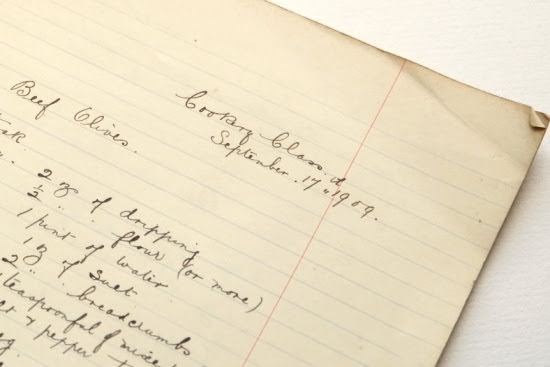 Cookery Class.
September. 17th, 1909.
Beef Olives.
2 oz of dripping
½ " flour (or more)
1 pint of water
1 oz of Suet
2 " breadcrumbs
teaspoonful of
& pepper